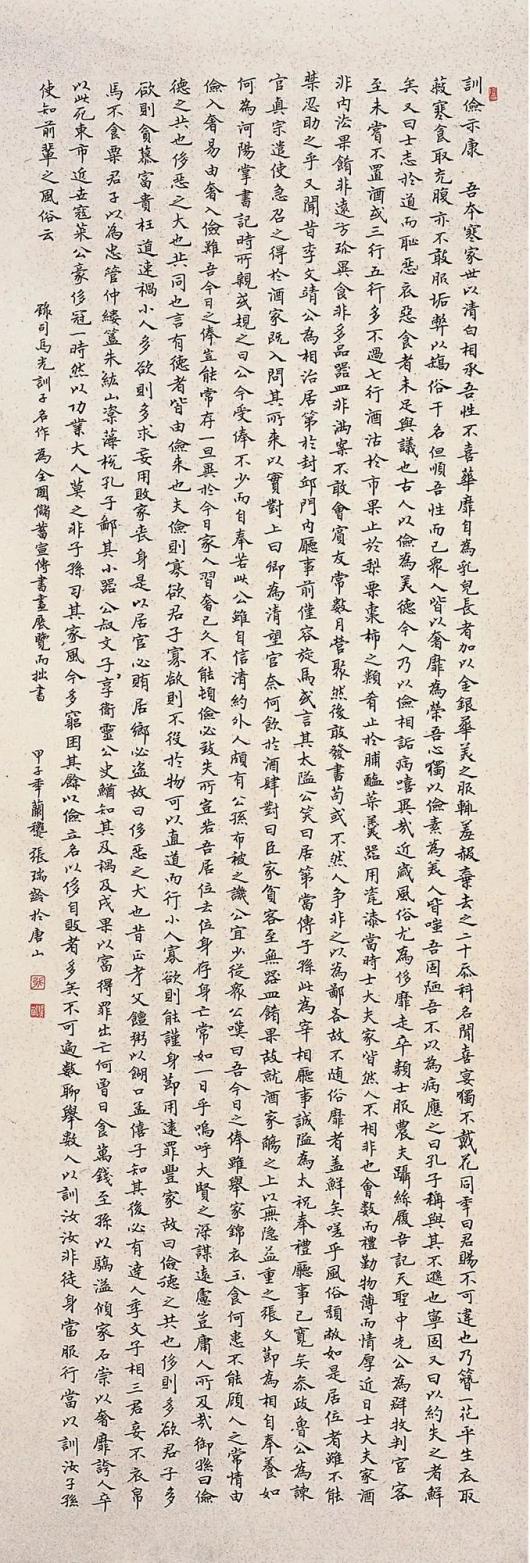 訓儉示康　吾本寒家世以清白相承吾性不喜華靡自為乳兒長者加以金銀華美之服輒羞赧棄去之二十忝科名聞喜宴獨不戴花同年曰君賜不可違也乃簪一花平生衣取
蔽寒食取充腹亦不敢服垢弊以矯俗干名但順吾性而已眾人皆以奢靡為榮吾心獨以儉素為美人皆嗤吾固陋吾不以為病應之曰孔子稱與其不遜也寧固又曰以約失之者鮮
矣又曰士志於道而恥惡衣惡食者未足與議也古人以儉為美德今人乃以儉相詬病嘻異哉近歲風俗尤為侈靡走卒類士服農夫躡絲履吾記天聖中先公為群牧判官客
至未嘗不置酒或三行五行多不過七行酒沽於市果止於梨栗棗柿之類肴止於脯醢菜羹器用瓷漆當時士大夫家皆然人不相非也會數而禮勤物薄而情厚近日士大夫家酒
非內法果餚非遠方珍異食非多品器皿非滿案不敢會賓友常數月營聚然後敢發書苟或不然人爭非之以為鄙吝故不隨俗靡者蓋鮮矣嗟乎風俗頹敝如是居位者雖不能
禁忍助之乎又聞昔李文靖公為相治居第於封邱門內廳事前僅容旋馬或言其太隘公笑曰居第當傳子孫此為宰相廳事誠隘為太祝奉禮廳事已寬矣參政魯公為諫
官真宗遣使急召之得於酒家既入問其所來以實對上曰卿為清望官奈何飲於酒肆對曰臣家貧客至無器皿餚果故就酒家觴之上以無隱益重之張文節為相自奉養如
何為河陽掌書記時所親或規之曰公今受俸不少而自奉若此公雖自信清約外人頗有公孫布被之譏公宜少從眾公嘆曰吾今日之俸雖舉家錦衣玉食何患不能顧人之常情由
儉入奢易由奢入儉難吾今日之俸豈能常存一旦異於今日家人習奢已久不能頓儉必致失所豈若吾居位去位身存身亡常如一日乎嗚呼大賢之深謀遠慮豈庸人所及哉御孫曰儉
德之共也侈惡之大也共同也言有德者皆由儉來也夫儉則寡欲君子寡欲則不役於物可以直道而行小人寡欲則能謹身節用遠罪豐家故曰儉德之共也侈則多欲君子多
欲則貪慕富貴枉道速禍小人多欲則多求妄用敗家喪身是以居官必賄居鄉必盜故曰侈惡之大也昔正考父饘粥以餬口孟僖子知其後必有達人季文子相三君妾不衣帛
馬不食粟君子以為忠管仲鏤簋朱紘山楶藻梲孔子鄙其小器公叔文子享衛靈公史鰌知其及禍及戌果以富得罪出亡何曾日食萬錢至孫以驕溢傾家石崇以奢靡誇人卒
以此死東市近世寇萊公豪侈冠一時然以功業大人莫之非子孫習其家風今多窮困其餘以儉立名以侈自敗者多矣不可遍數聊舉數人以訓汝汝非徒身當服行當以訓汝子孫
使知前輩之風俗云
錄司馬光訓子名作為全國儲蓄宣傳書畫展覽而拙書
甲子年蘭穐張瑞齡於唐山